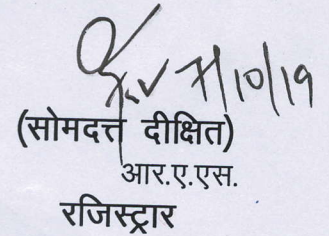 7/10/19
(सोमदत्त दीक्षित)
आर.ए.एस.
रजिस्ट्रार